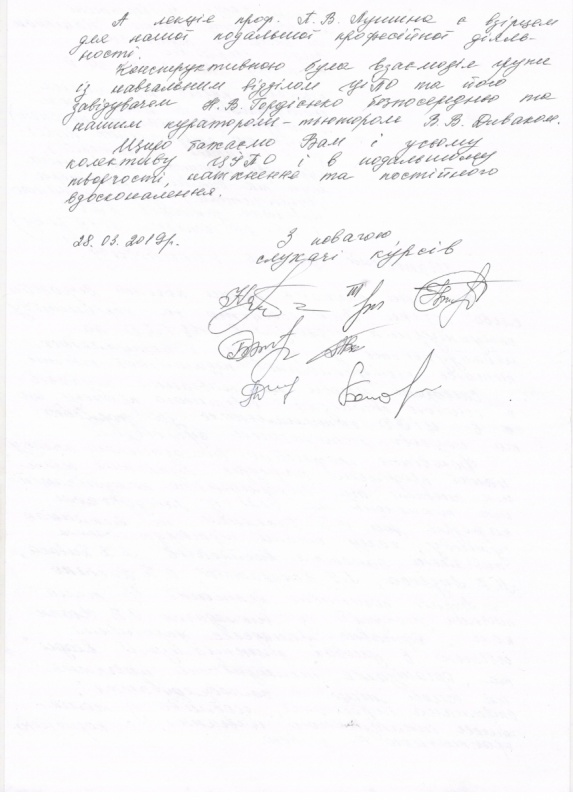 А лекція проф. П. В. Лушина є взірцем
для нашої подальшої професійної діяль-
ності.
Конструктивною була взаємодія групи
із навчальним відділом ЦІПО та його
завідувачем Н. В. Гордієнко безпосередньо та
нашим куратором-тьютором В. В. Диваком.
Щиро бажаємо Вам і усьому
колективу ЦІПО і в подальшому
творчості, натхнення та постійного
вдосконалення.
28. 03. 2019р.
З повагою
слухачі курсів